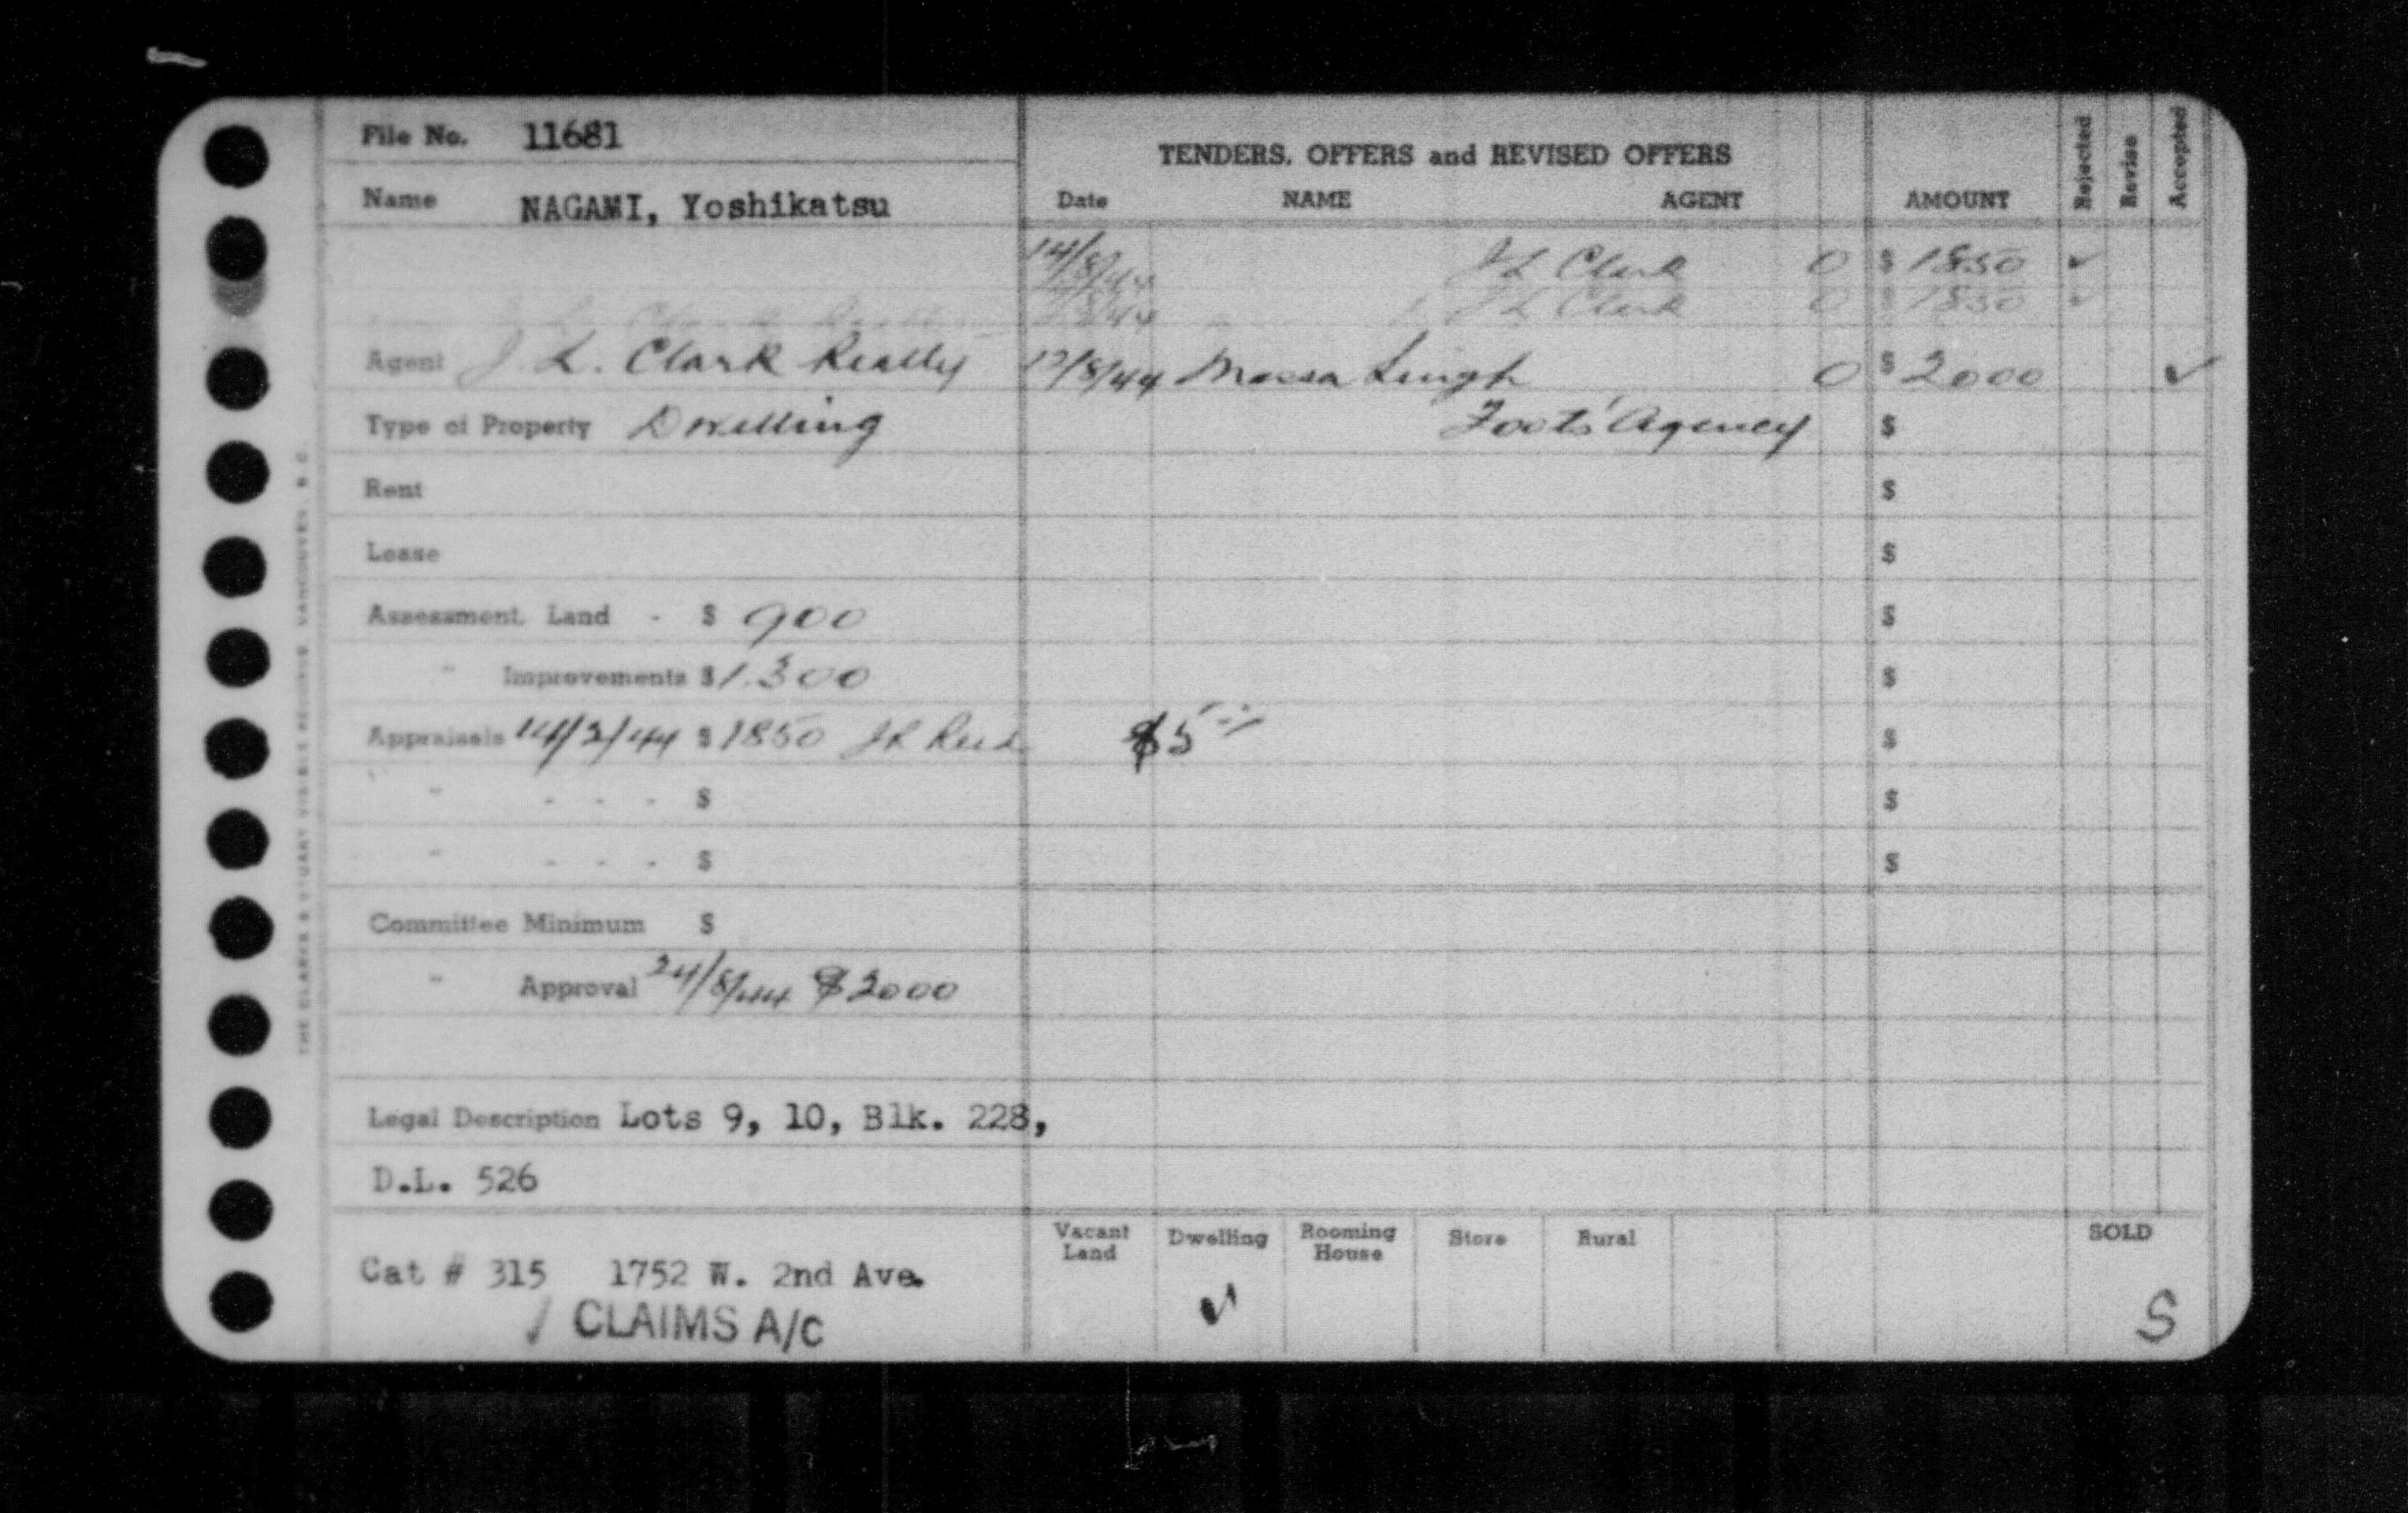 File No. 11681
Name NAGAMI, Yoshikatsu
Agent J. L. Clark Realty
Type of Property Dwelling
Rent
Lease
Assessment, Land - $ 900
" Improvements $ 1.300
Appraisals 14/3/44 $ 1850
" - - - $
" - - - $
Committee Minimum $
" Approval 24/8/44 $2000
Legal Description Lots 9, 10, Blk. 228,
D.L. 526
Cat # 315 1752 W. 2nd Ave.
CLAIMS A/C
TENDERS, OFFERS and REVISED OFFERS
Date NAME AGENT AMOUNT Rejected Revise Accepted
14/8/44 J L Clark 0 $ 1850 ✓
J L Clark 0 $ 1850 ✓
Singh 0 $ 2000 ✓
Foots' Agency $
$
$
$
$
$5 $
$
$
Vacant Land Dwelling Rooming House Store Rural SOLD
✓ S